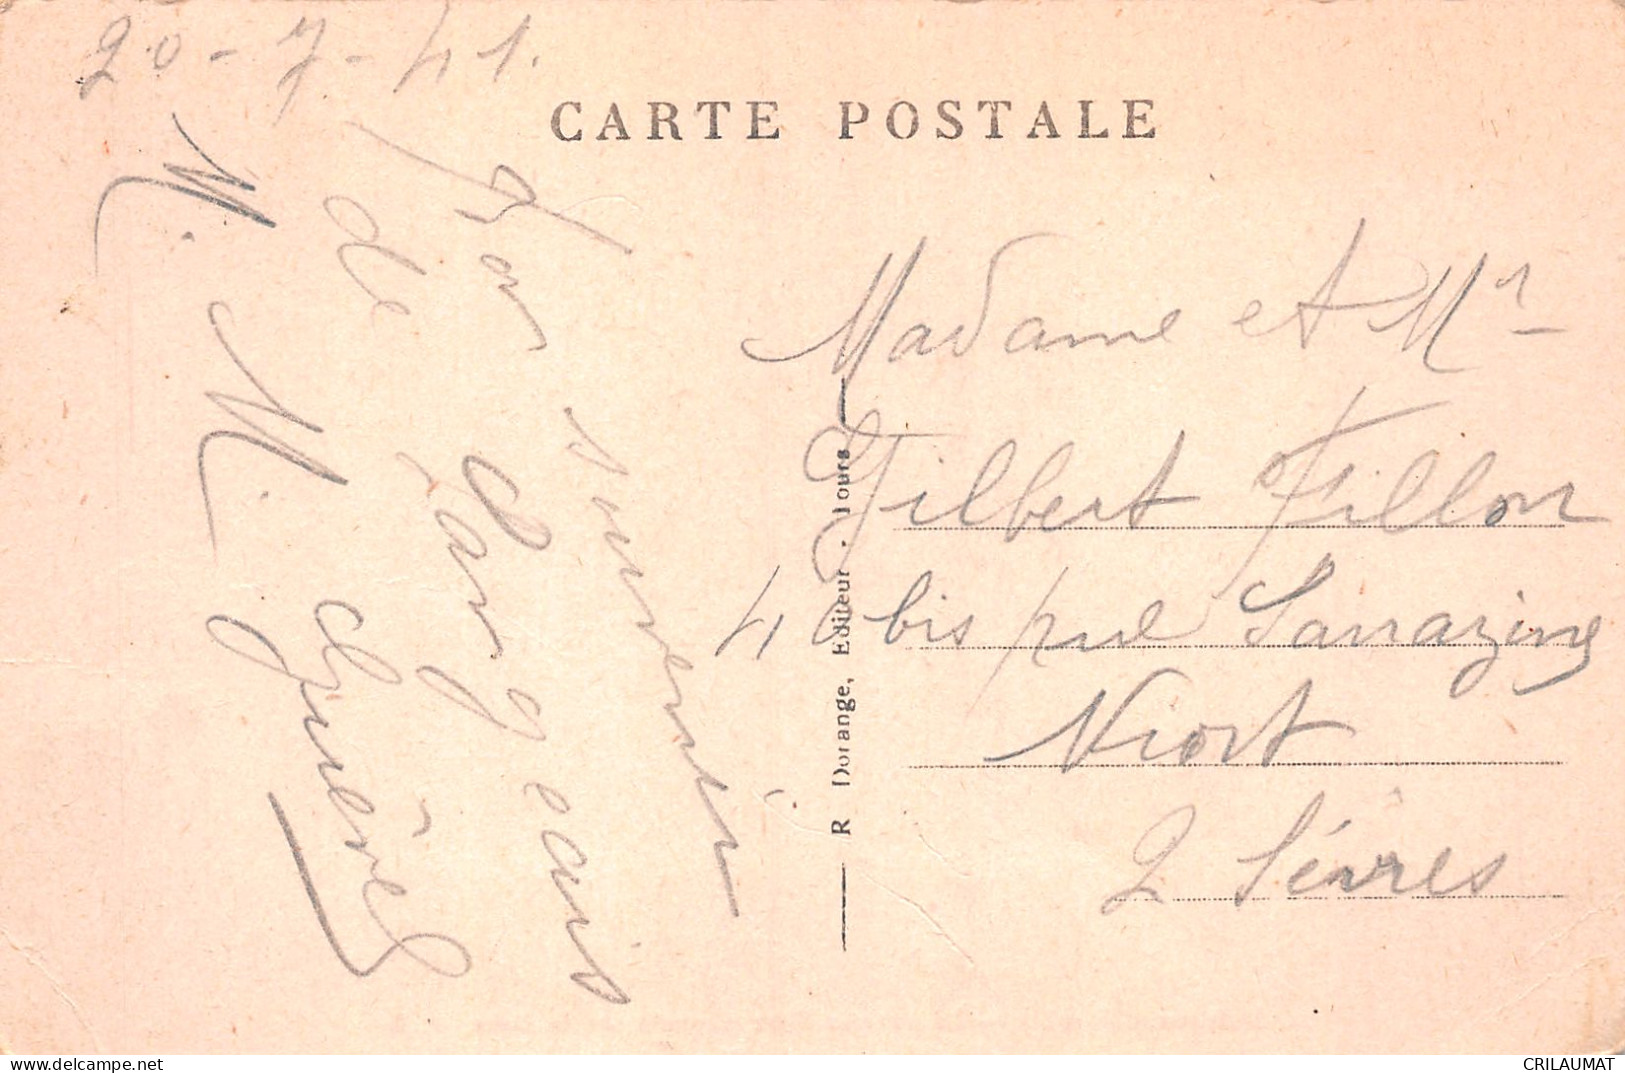 20-7-41.
CARTE POSTALE
Bon souvenir
de Langeais
M. M. Guéret
Madame et Mr
Gilbert Fillon
40 bis rue Sarrazine
Niort
2 Sèvres
R Dorange, Editeur. Tours
delcampe.net
CRILAUMAT